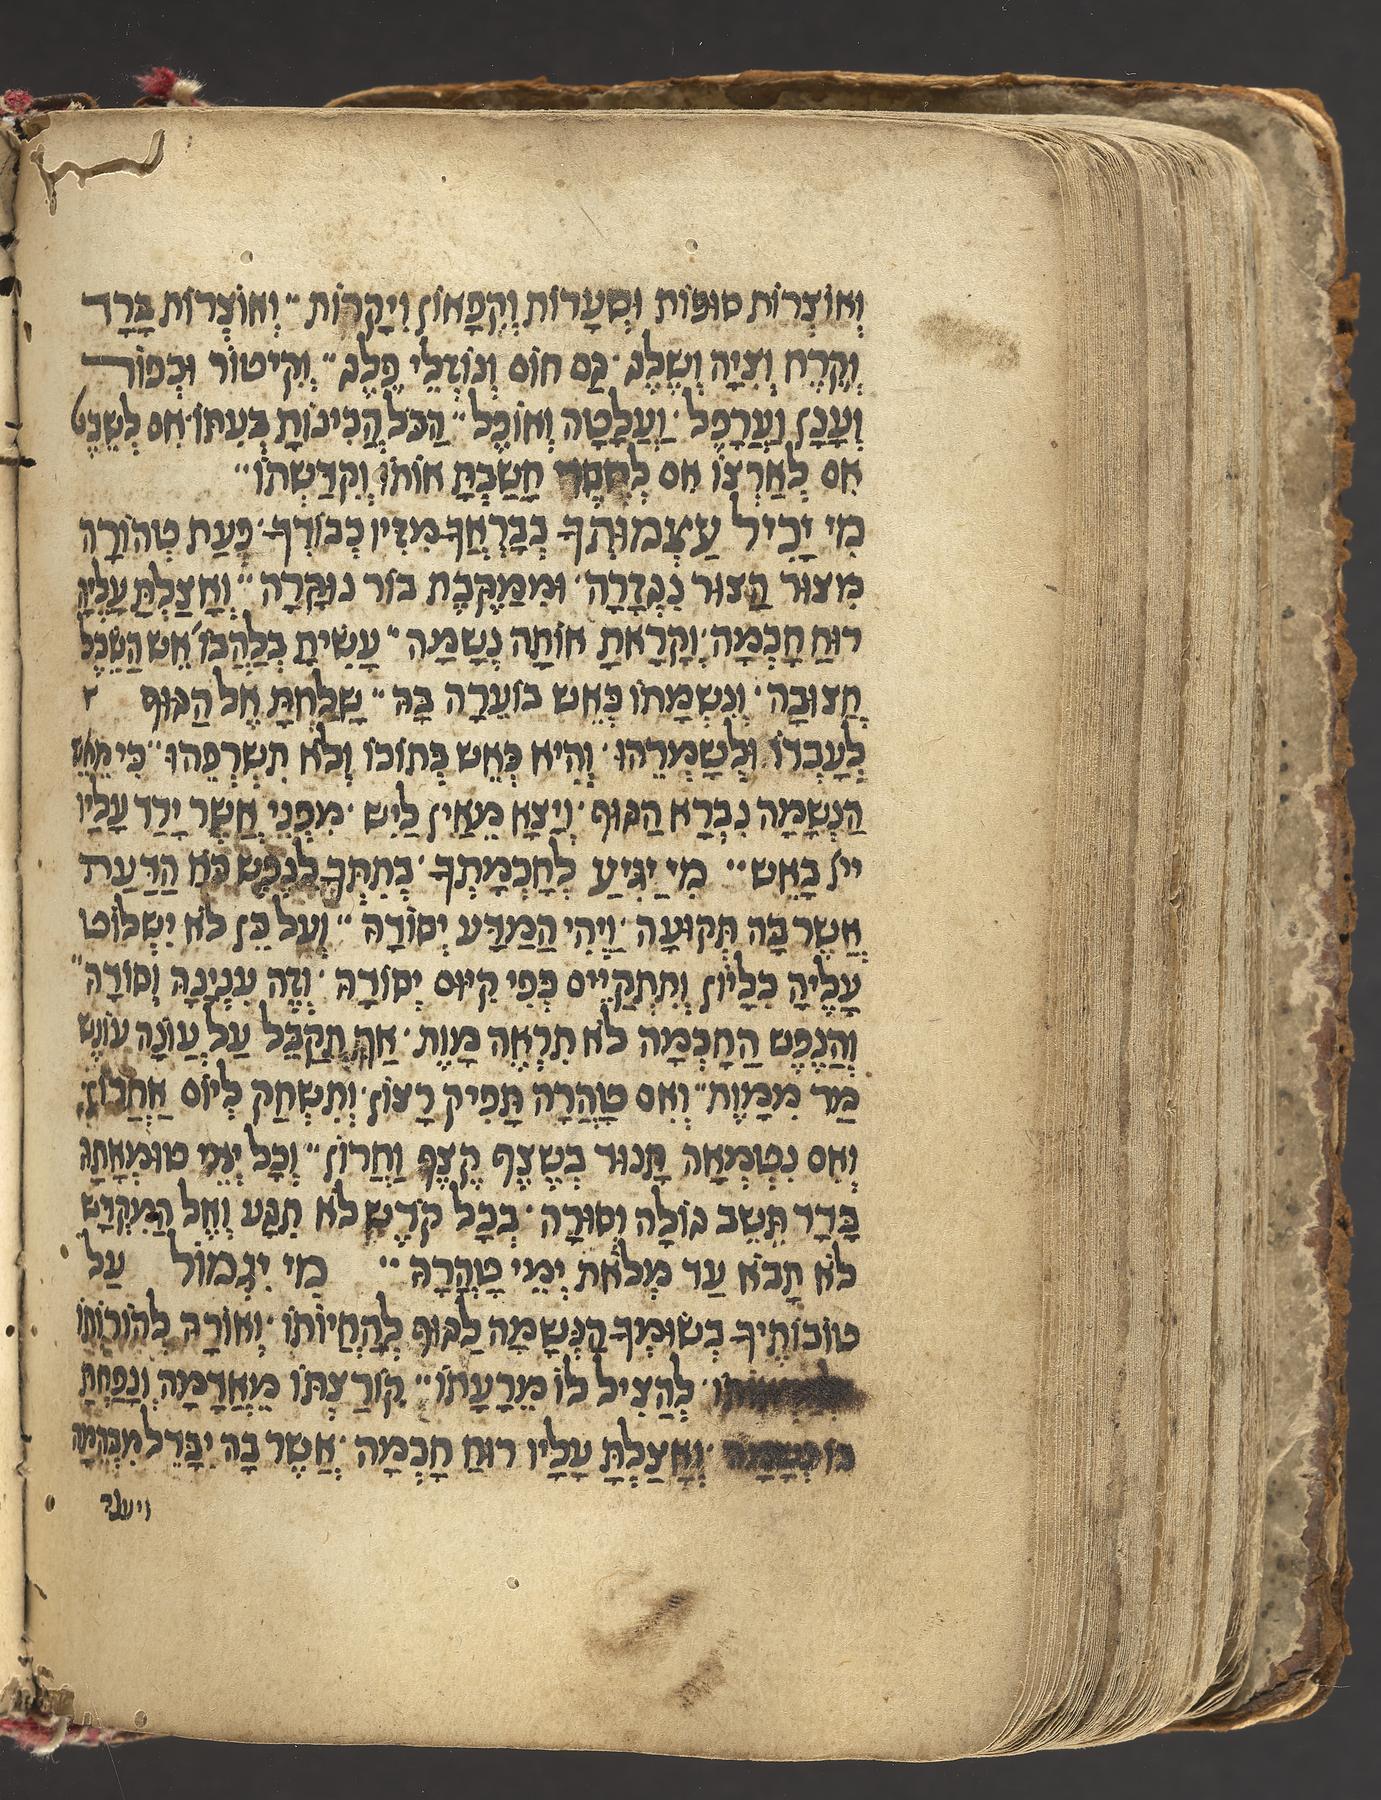 וְאוֹצְרוֹת סוּפוֹת וּסְעָרוֹת וְקִפָּאוֹן וִיקָרוֹת״ וְאוֹצְרוֹת בָּרָד
וְקֶרַח וְצִיָּה וְשֶׁלֶג׳ גַּם חוֹם וְנוֹזְלֵי פֶלֶג״ וְקִיטוֹר וּכְפוֹר
וְעָנָן וַעֲרָפֶל׳ וַעֲלָטָה וְאוֹפֶל״ הַכֹּל הֲכִינוֹתָ בְּעִתּוֹ׳ אִם לְשֵׁבֶט
אִם לְאַרְצוֹ אִם חֲשַׁבְתָּ אוֹתוֹ וְקִדַּשְׁתּוֹ״
מִי יָכִיל עַצְמוּתְךָ בְּבָרְאֲךָ מִזִּיו כְּבוֹדְךָ׳ פְּעַת טְהוֹרָה
מִצּוּר הַצּוּר נִגְזָרָה׳ וּמִמַּקֶּבֶת בּוֹר נוּקָּרָה״ וְאָצַלְתָּ עָלֶיהָ
רוּחַ חָכְמָה׳ וְקָרָאתָ אוֹתָהּ נְשָׁמָה״ עָשִׂיתָ בְּלַהֲבוֹ׳ אֵשׁ הַשֵּׂכֶל
חֲצוּבָה׳ וְנִשְׁמָתוֹ כְּאֵשׁ בּוֹעֵרָה בָּהּ״ שָׁלַחְתָּ אֶל הַגּוּף
לְעָבְדוֹ וּלְשָׁמְרֵהוּ׳ וְהִיא כְּאֵשׁ בְּתוֹכוֹ וְלֹא תִשְׂרְפֵהוּ״ כִּי מֵאֵשׁ
הַנְּשָׁמָה נִבְרָא הַגּוּף׳ וְיָצָא מֵאַיִן לְיֵשׁ׳ מִפְּנֵי אֲשֶׁר יָרַד עָלָיו
ייי בָּאֵשׁ״ מִי יַגִּיעַ לְחָכְמָתְךָ׳ בְּתִתְּךָ לַנֶּפֶשׁ כֹּחַ הַדַּעַת
אֲשֶׁר בָּהּ תְּקוּעָה׳ וַיְהִי הַמַּדָּע יְסוֹדָהּ״ וְעַל כֵּן לֹא יִשְׁלוֹט
עָלֶיהָ כִּלָּיוֹן וְתִתְקַיֵּים כְּפִי קִיּוּם יְסוֹדָהּ׳ וְזֶה עִנְיָנָהּ וְסוֹדָהּ״
וְהַנֶּפֶשׁ הַחֲכָמָה לֹא תִרְאֶה מָוֶת׳ אַךְ תְּקַבֵּל עַל עֲוֹנָהּ עוֹנֶשׁ
מַר מִמָּוֶת״ וְאִם טָהֲרָה תָּפִיק רָצוֹן׳ וְתִשְׂחַק לְיוֹם אַחֲרוֹן׳
וְאִם נִטְמְאָה תָּנוּד בְּשֶׁצֶף קֶצֶף וְחָרוֹן״ וְכָל יְמֵי טוּמְאָתָהּ
בָּדָד תֵּשֵׁב גּוֹלָה וְסוּרָה׳ בְּכָל קֹדֶשׁ לֹא תִגָּע וְאֶל הַמִּקְדָּשׁ
לֹא תָבֹא עַד מְלֹאת יְמֵי טָהֳרָהּ״ מִי יִגְמוֹל עַל
טוֹבוֹתֶיךָ בְּשׂוּמְךָ הַנְּשָׁמָה לַגּוּף לְהַחֲיוֹתוֹ׳ וְאוֹרָהּ לְהוֹרוֹתוֹ
לְהַצִּיל לוֹ מֵרָעָתוֹ״ קוֹרַצְתּוֹ מֵאֲדָמָה וְנָפַחְתָּ
בּוֹ נְשָׁמָה׳ וְאָצַלְתָּ עָלָיו רוּחַ חָכְמָה׳ אֲשֶׁר בָּהּ יִבָּדֵל מִבְּהֵמָה